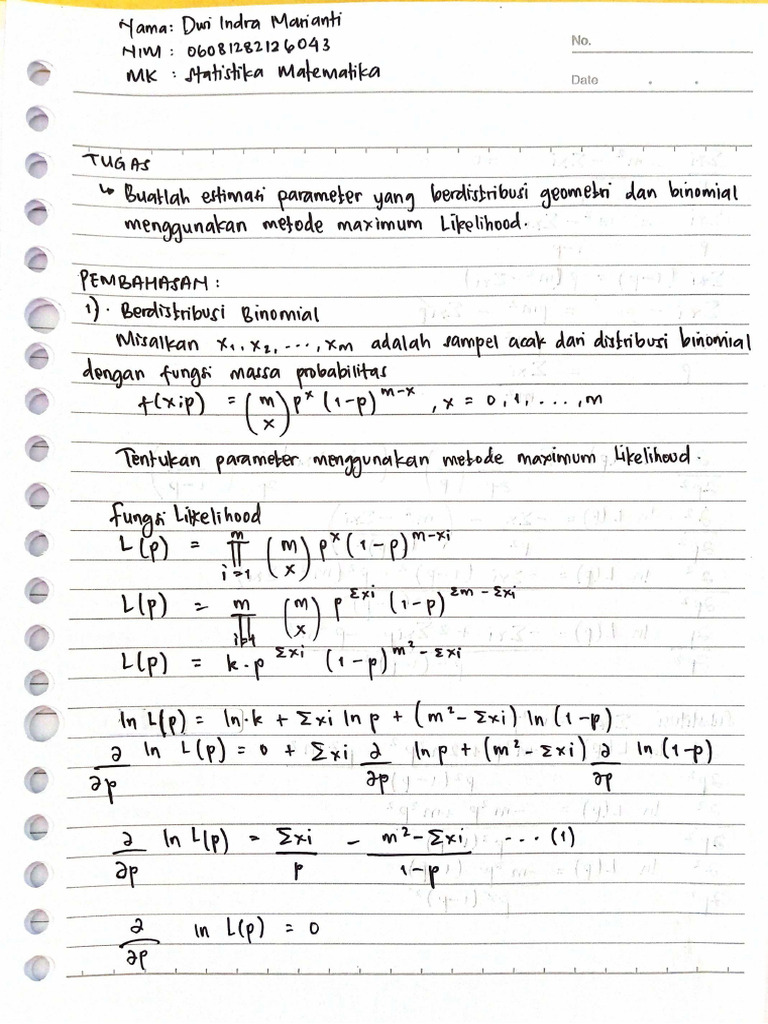 Nama: Dwi Indra Marianti
NIM : 06081282126043
MK : Statistika Matematika
No.
Date . .
TUGAS
↳ Buatlah estimasi parameter yang berdistribusi geometri dan binomial
menggunakan metode maximum Likelihood.
PEMBAHASAN :
1). Berdistribusi Binomial
Misalkan x₁, x₂, ..., xm adalah sampel acak dari distribusi binomial
dengan fungsi massa probabilitas
f(x;p) = (m x) p^x (1-p)^{m-x} , x = 0, 1, ..., m
Tentukan parameter menggunakan metode maximum Likelihood.
fungsi Likelihood
L(p) = ∏_{i=1}^{m} (m x) p^x (1-p)^{m-xi}
L(p) = ∏_{i=1}^{m} (m x) p^{Σxi} (1-p)^{Σm - Σxi}
L(p) = k . p^{Σxi} (1-p)^{m² - Σxi}
ln L(p) = ln.k + Σxi ln p + (m² - Σxi) ln (1-p)
∂/∂p ln L(p) = 0 + Σxi ∂/∂p ln p + (m² - Σxi) ∂/∂p ln (1-p)
∂/∂p ln L(p) = Σxi/p - m² - Σxi/1-p ... (1)
∂/∂p ln L(p) = 0